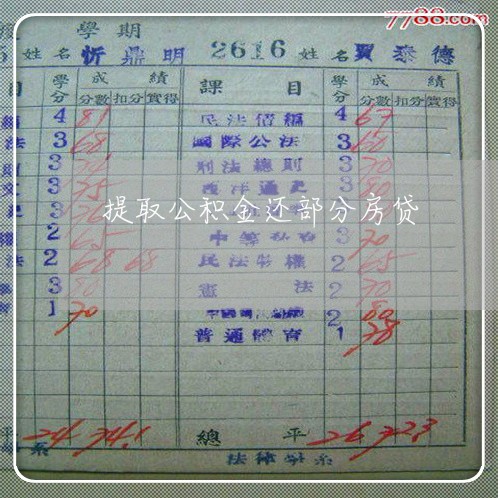 7788.com
學期
5 姓名 忻鼎明 2616 姓名 賈泰德
目 學分 成績 課目 學分 成績
分數 扣分 實得 分數 扣分 實得
4 81 民法債編 4 67
法 3 68 國際公法 3 60
3 刑法總則 3 70
3 75 西洋通史 3
提取公积金还部分房贷
2 65 3 70
法 2 68 68 民法物權 2 65
3 憲法 2 70
1 70 2 80
普通體育 1 78
平 24 74.1 總平 26 72.3
系 法律學系